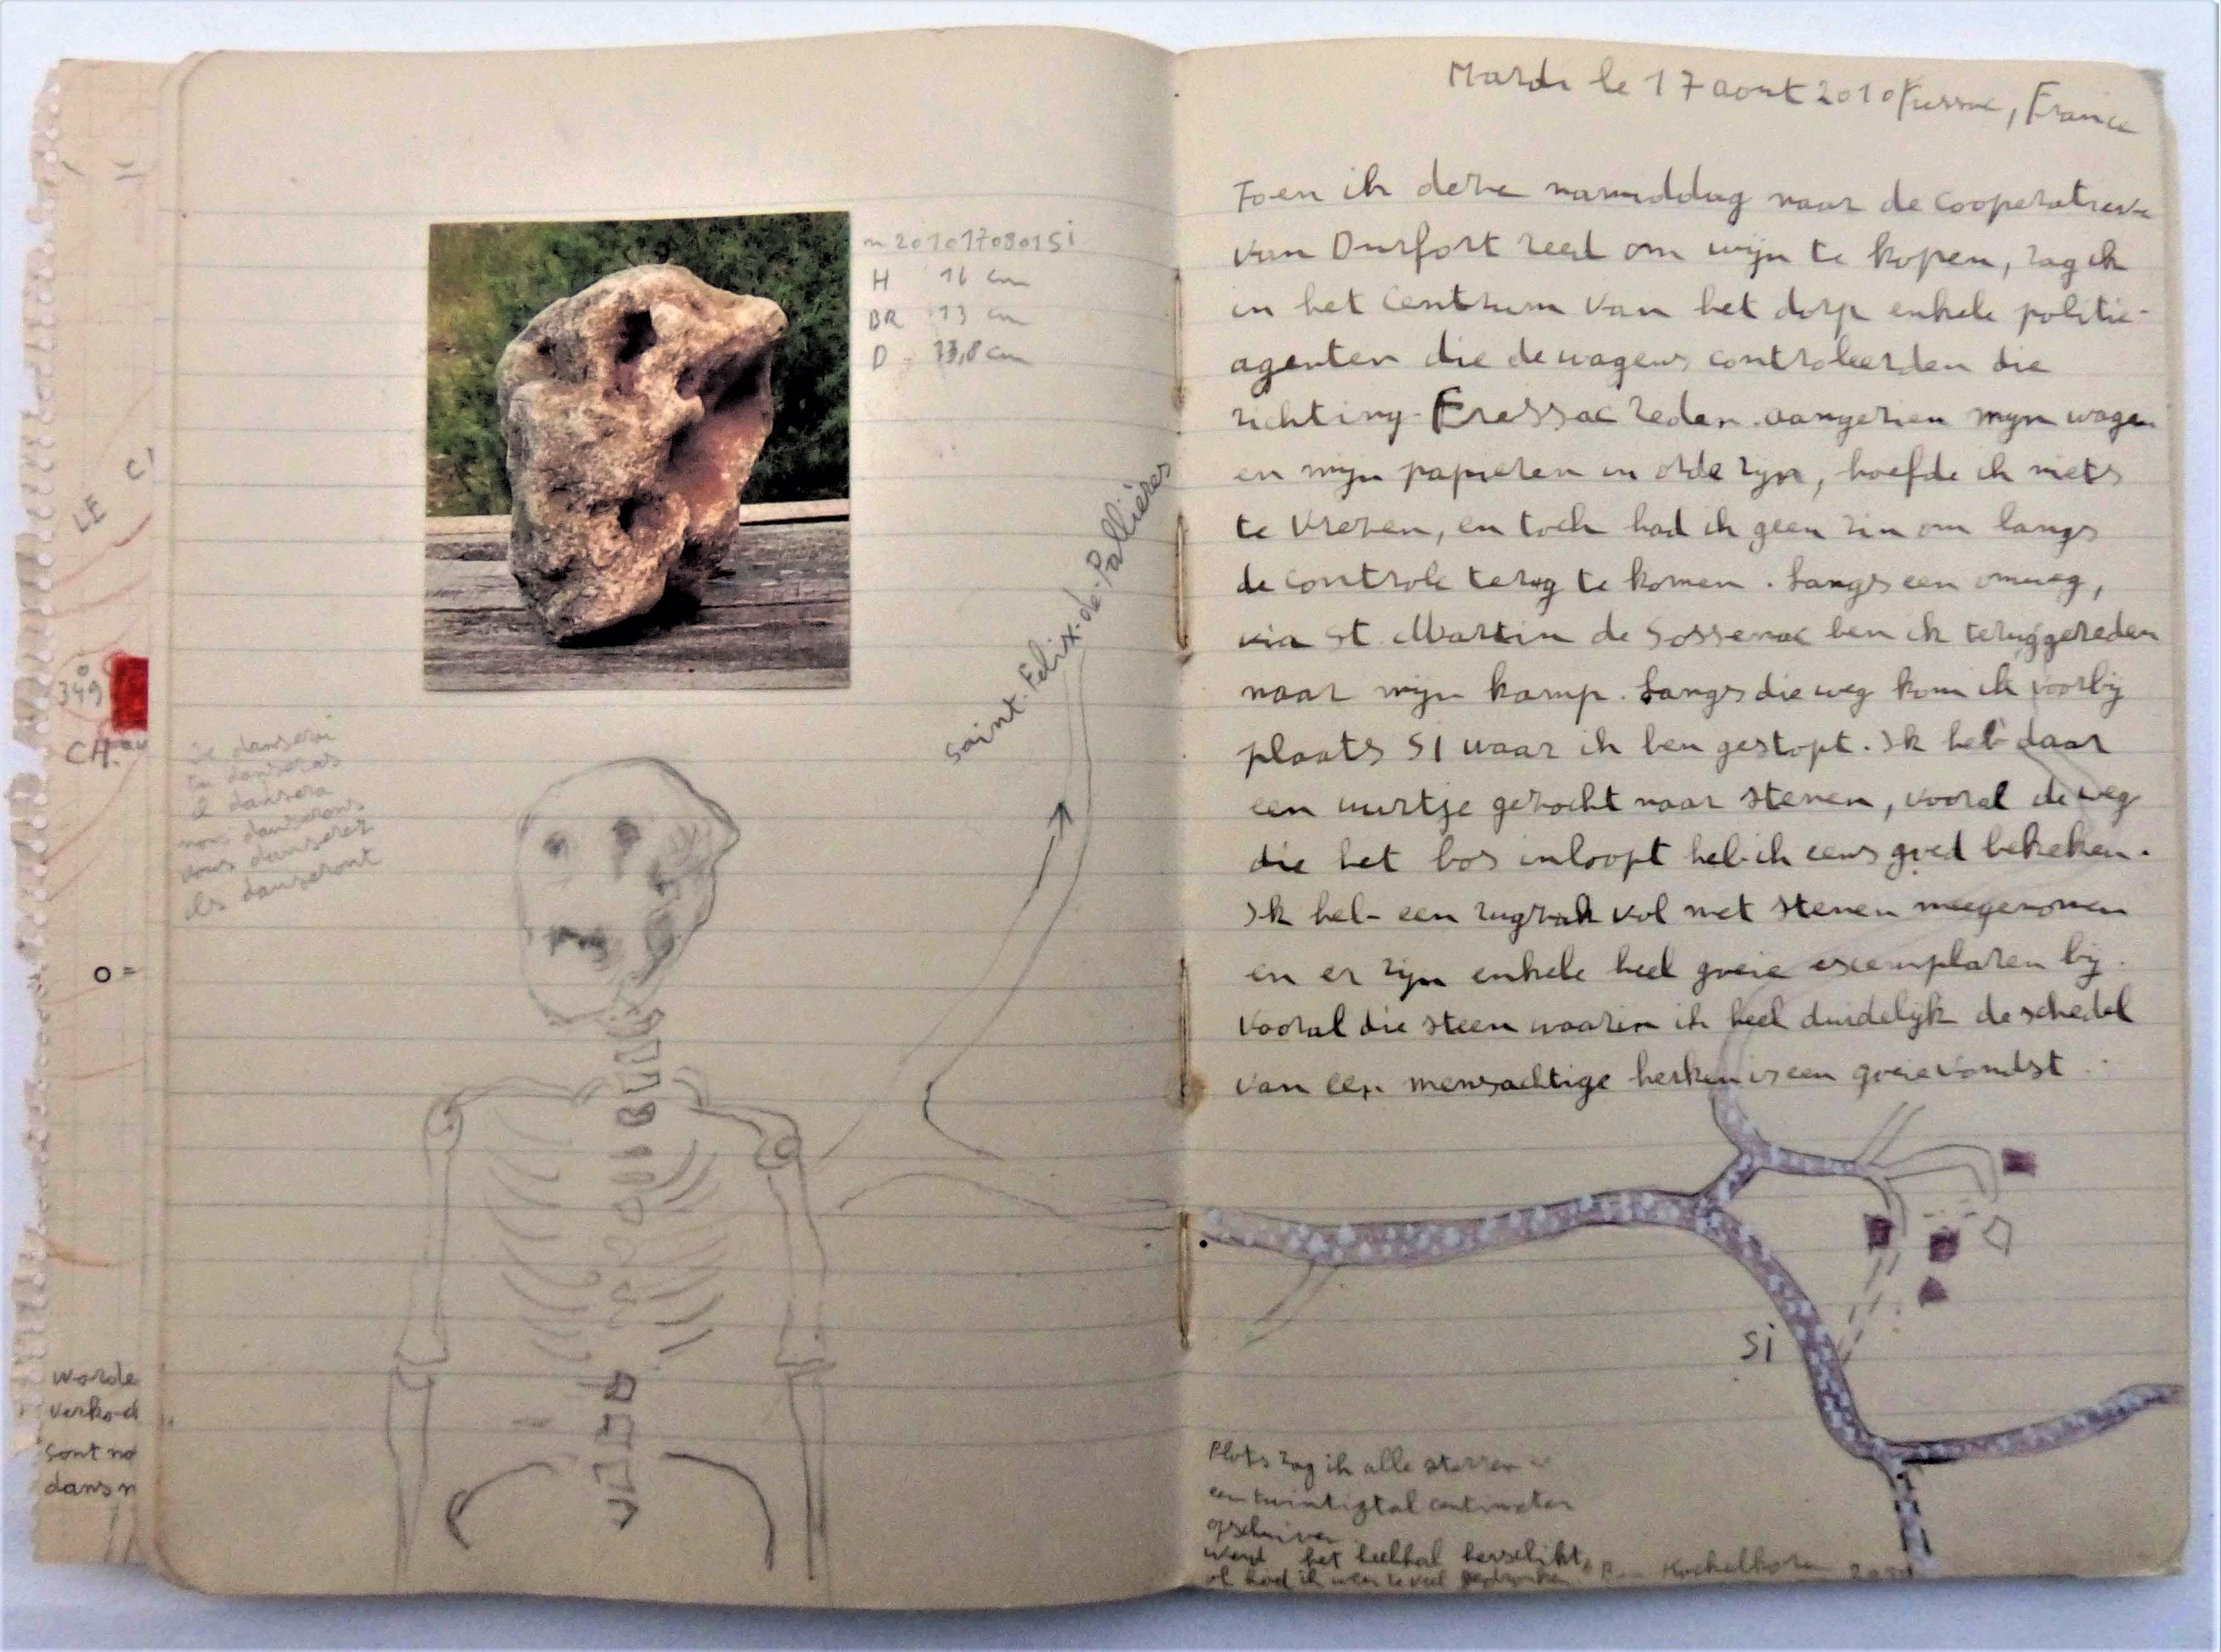 LE CI
349
CH. au
worde
verko-d
sont no
dans n
n 2010170801Si
H 16 cm
BR 13 cm
D 13,8 cm
Saint-Felix-de-Pallières
Je danserai
tu danseras
il dansera
nous danserons
vous danserez
ils danseront
Mardi le 17 aout 2010 France
Toen ik deze namiddag naar de cooperatieve
van Durfort reed om wijn te kopen, zag ik
in het centrum van het dorp enkele politie-
agenten die de wagens controleerden die
richting Fressac reden. aangezien mijn wagen
en mijn papieren in orde zijn, hoefde ik niets
te vrezen, en toch had ik geen zin om langs
de controle terug te komen. Langs een omweg,
via St Martin de Sossenac ben ik teruggereden
naar mijn kamp. Langs die weg kom ik voorbij
plaats SI waar ik ben gestopt. Ik heb daar
een uurtje gezocht naar stenen, vooral de weg
die het bos inloopt heb ik eens goed bekeken.
Ik heb een rugzak vol met stenen meegenomen
en er zijn enkele heel goeie exemplaren bij.
Vooral die steen waarin ik heel duidelijk de schedel
van een mensachtige herken is een goeie vondst.
Si
Plots zag ik alle sterren
een twintigtal centimeter
opschuiven
werd het heelhal herschikt,
of had ik weer te veel gedronken